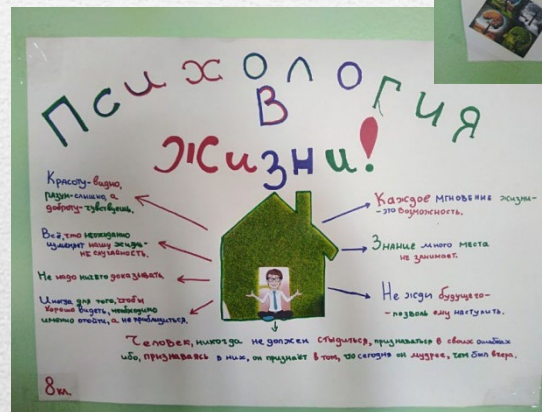 Психология
в
жизни!
Красоту - видно,
разум - слышно, а
доброту - чувствуешь.
Всё, что неожиданно
изменяет нашу жизнь -
не случайность.
Не надо ничего доказывать.
Иногда для того, чтобы
хорошо видеть, необходимо
именно отойти, а не приблизиться.
Каждое мгновение жизни -
- это возможность.
Знание много места
не занимает.
Не жди будущего -
- позволь ему наступить.
Человек, никогда не должен стыдиться, признаваться в своих ошибках
ибо, признаваясь в них, он признаёт в том, что сегодня он мудрее, чем был вчера.
8 кл.